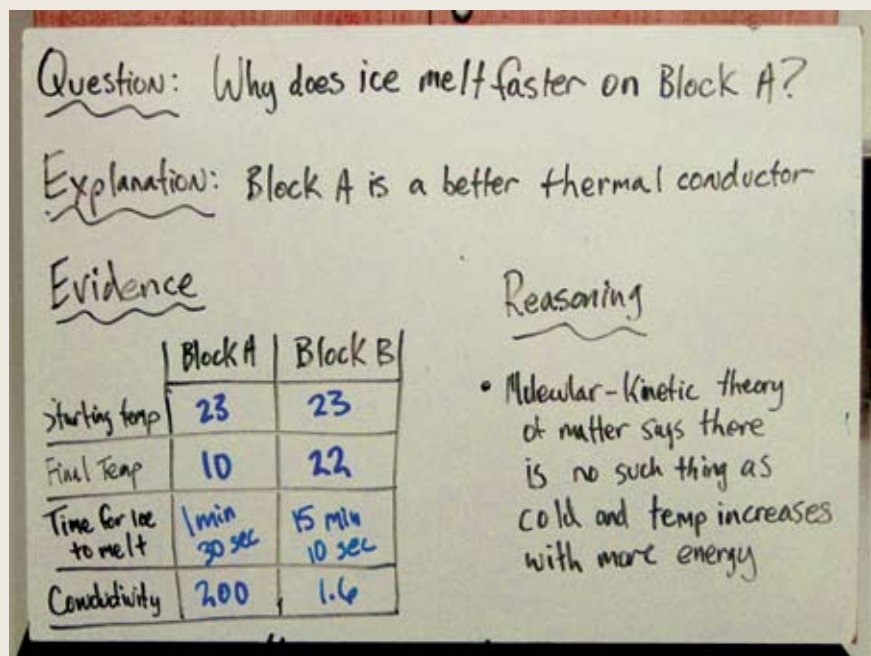 Question: Why does ice melt faster on Block A?
Explanation: Block A is a better thermal conductor
Evidence
Block A Block B
Starting temp 23 23
Final Temp 10 22
Time for Ice to melt 1 min 30 sec 15 min 10 sec
Conductivity 200 1.6
Reasoning
• Molecular-Kinetic theory
of matter says there
is no such thing as
cold and temp increases
with more energy